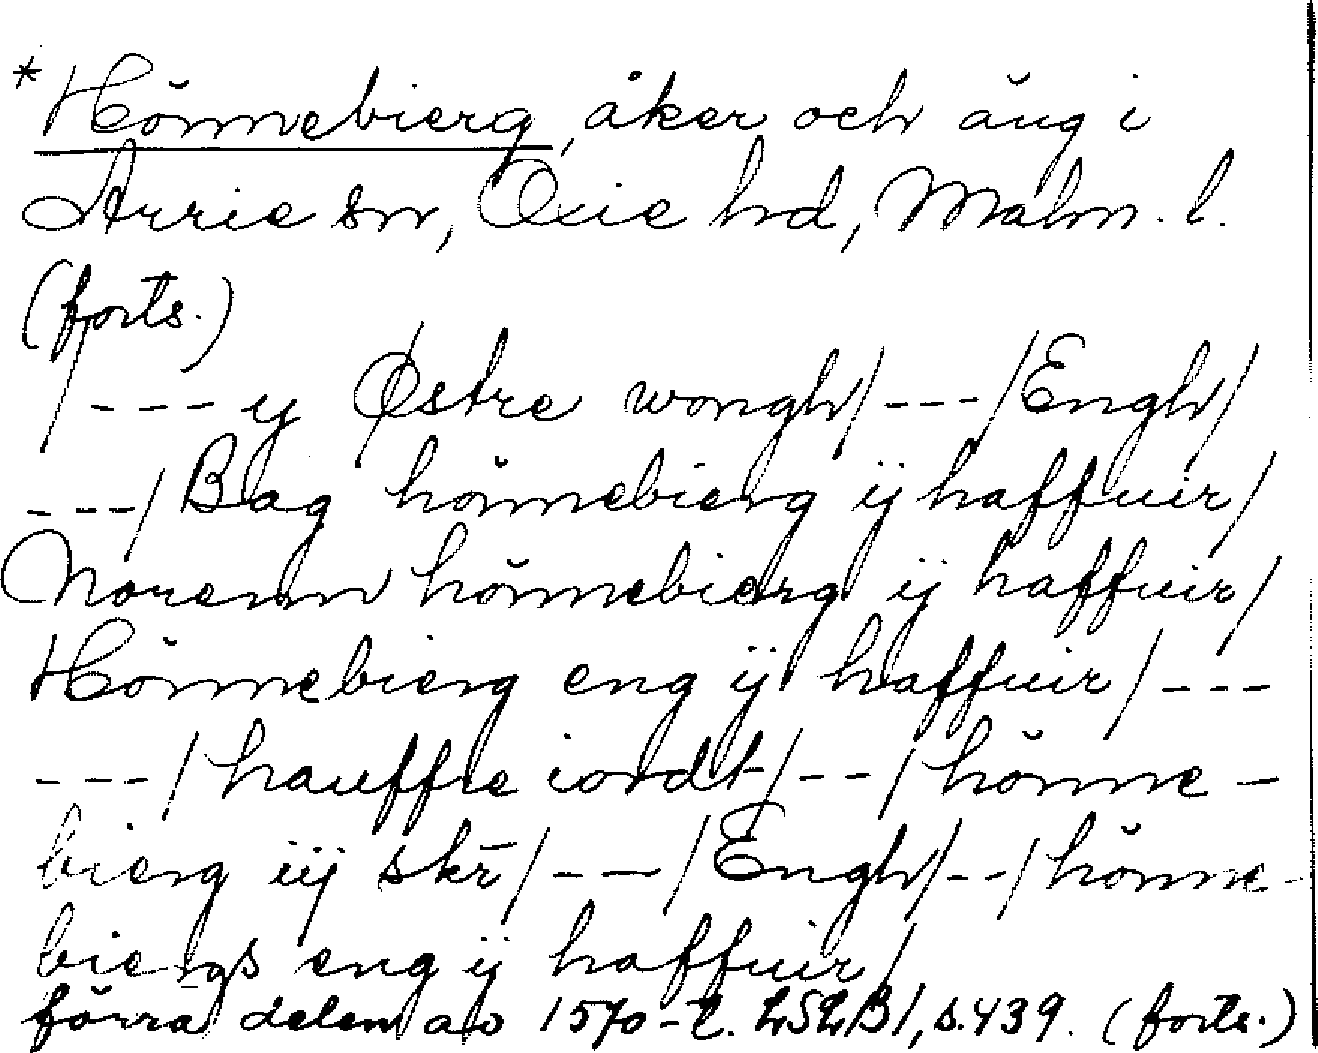 *Hönnebierg, åker och äng i
Arrie sn, Oxie hd, Malm. l.
(forts.)
/ --- y Østre wongh/ --- /Engh/
---/ Bag hönnebierg ij haffuir/
Norenn hönnebierg ij haffuir/
Hönnebierg eng ij haffuir/ ---
---/ hauffre iordt/ -- / hönne-
bierg iij skr̄/ -- /Engh/--/hönne-
biergs eng ij haffuir/
förra delen av 1570-t. LSLB1, s. 439. (forts.)